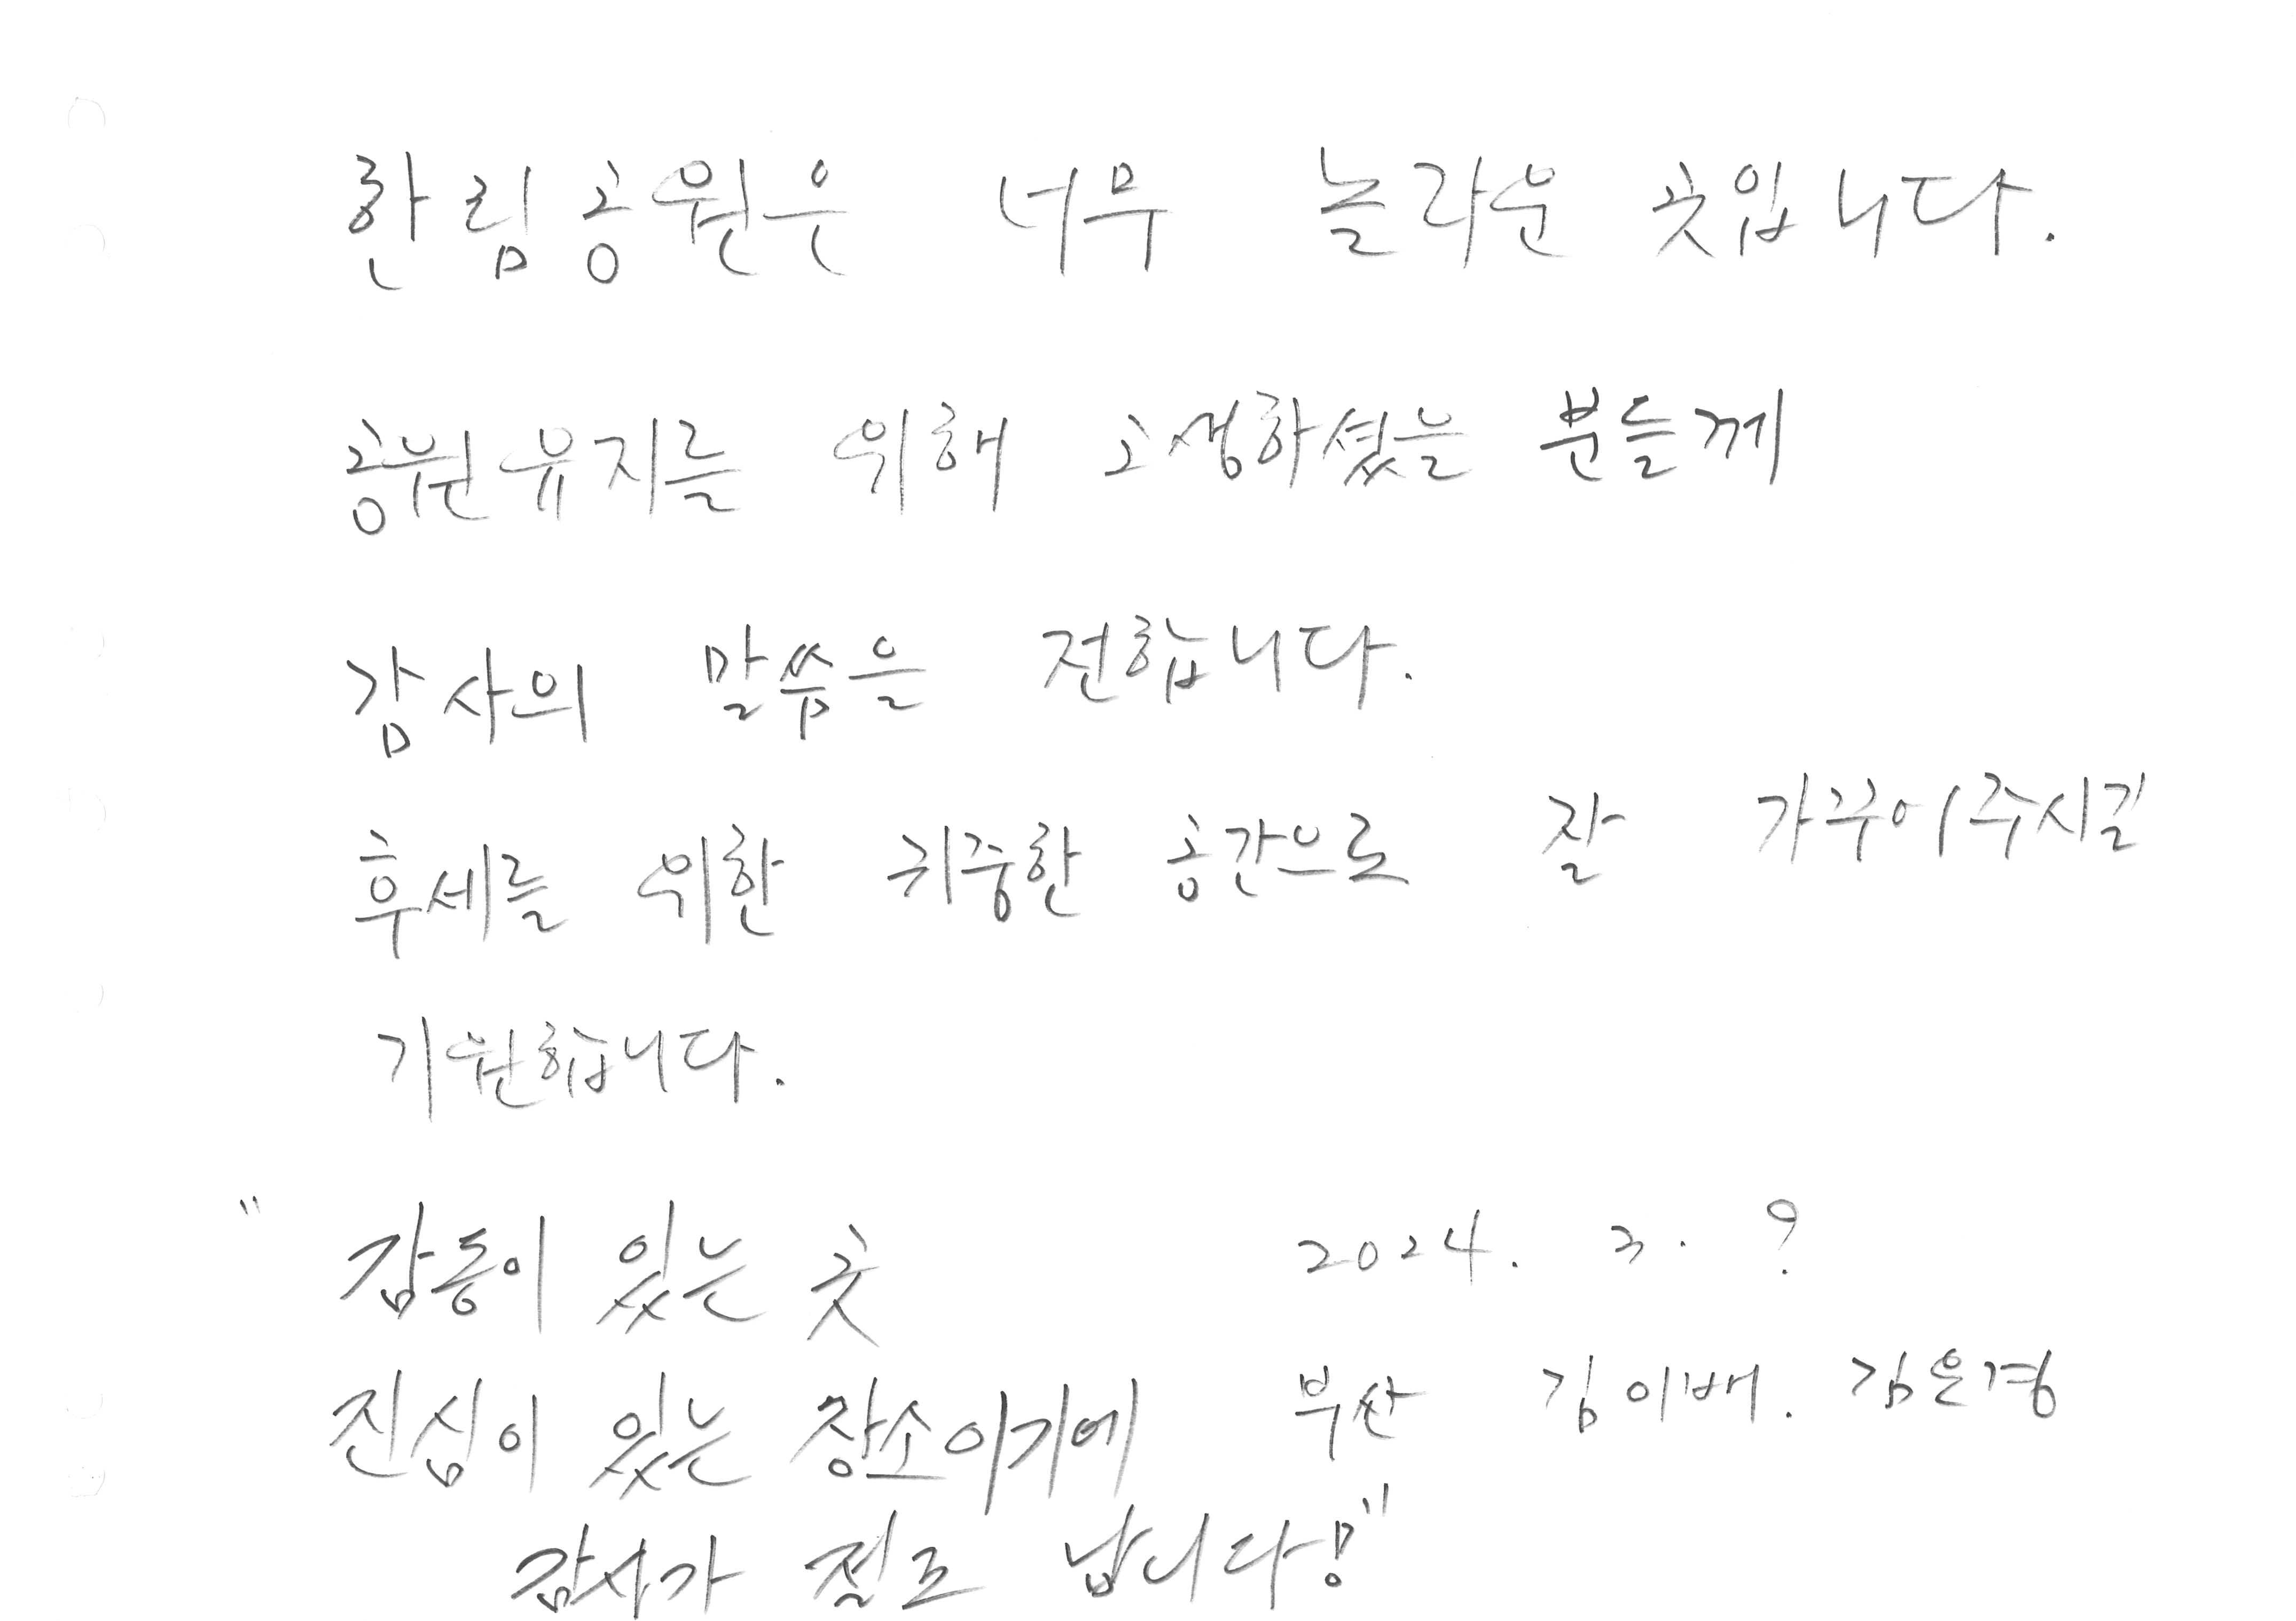 한림공원은 너무 놀라운 곳입니다.
공원유지를 위해 고생하셨을 분들께
감사의 말씀을 전합니다.
후세를 위한 귀중한 공간으로 잘 가꾸어주시길
기원합니다.
" 감동이 있는 곳
2024. 3. ?
진심이 있는 장소이기에
부산 김이배. 김은경
감사가 절로 납니다!"